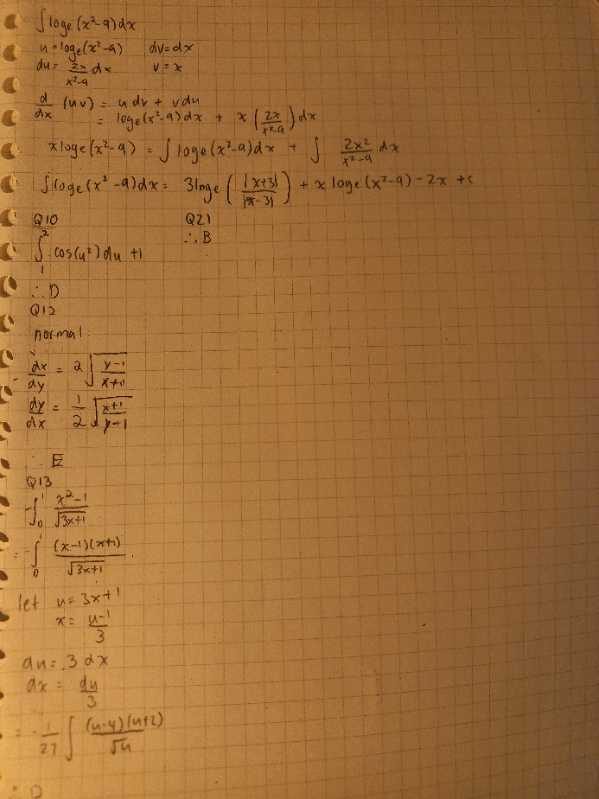 ∫ loge(x²-9)dx
u = loge(x²-9) dv = dx
du = 2x/(x²-9) dx v = x
d/dx (uv) = u dv + v du
= loge(x²-9)dx + x(2x/(x²-9))dx
x loge(x²-9) = ∫ loge(x²-9)dx + ∫ 2x²/(x²-9) dx
∫ loge(x²-9)dx = 3 loge(|x+3|/|x-3|) + x loge(x²-9) - 2x + c
Q10 Q21
∫₁² cos(u²)du + 1 ∴ B
∴ D
Q12
normal
dx/dy = 2√((y-1)/(x+1))
dy/dx = 1/2 √((x+1)/(y-1))
∴ E
Q13
-∫₀¹ (x²-1)/√(3x+1)
= -∫₀¹ (x-1)(x+1)/√(3x+1)
let u = 3x+1
x = (u-1)/3
du = 3 dx
dx = du/3
= -1/27 ∫ (u-4)(u+2)/√u
∴ D